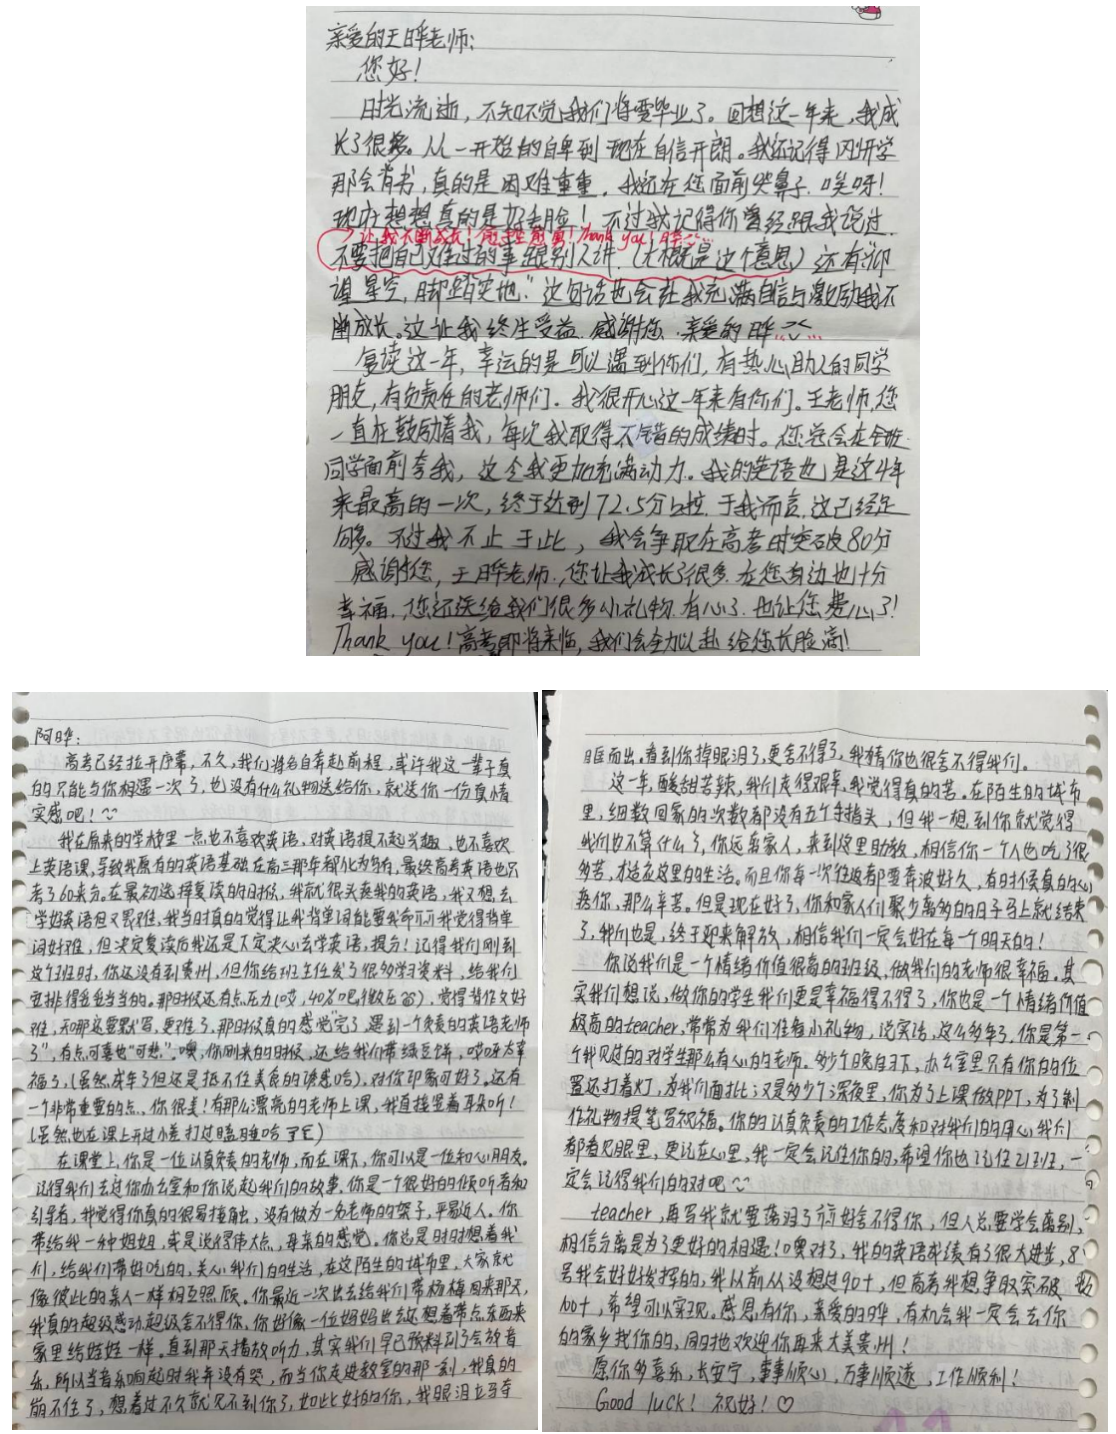 亲爱的王晔老师:
您好!
时光流逝，不知不觉我们将要毕业了。回想这一年来，我成
长了很多。从一开始的自卑到现在自信开朗。我还记得刚开学
那会背书，真的是困难重重，我还在您面前哭鼻子，哎呀!
现在想想真的是好丢脸! 不过我记得你曾经跟我说过
让我不断成长! 感谢 Thank you! 晔
不要把自己难过的事跟别人讲.(大概是这个意思) 还有“仰
望星空，脚踏实地.”这句话也会让我充满自信与激励我不
断成长。这让我终生受益.感谢您.亲爱的晔
复读这一年，幸运的是可以遇到你们，有热心助人的同学
朋友，有负责任的老师们. 我很开心这一年来有你们。王老师,您
一直在鼓励着我，每次我取得不错的成绩时。您总会在全班
同学面前夸我，这令我更加充满动力。我的英语也是这4年
来最高的一次，终于达到72.5分啦. 于我而言,这已经足
够。不过我不止于此，我会争取在高考时突破80分
感谢您，王晔老师.,您让我成长了很多.在您身边也十分
幸福.,您还送给我们很多小礼物.有心了.也让您费心了!
Thank you!高考即将来临,我们会全力以赴给您长脸滴!
阿晔:
高考已经拉开序幕，不久，我们将各自奔赴前程，或许我这一辈子真
的只能与你相遇一次了，也没有什么礼物送给你、就送你一份真情
实感吧!
我在原来的学校里一点也不喜欢英语，对英语提不起兴趣，也不喜欢
上英语课,导致我原有的英语基础在高三那年都化为乌有，最终高考英语也只
考了60来分。在最初选择复读的时候，我就很头疼我的英语，我又想去
学好英语但又畏难，我当时真的觉得让我背单词能要我命 我觉得背单
词好难，但决定复读后我还是下定决心去学英语，提分! 记得我们刚到
这个班时，你还没有到贵州，但你给班主任发了很多学习资料，给我们
安排得妥妥当当的。那时候还有点压力(哎，40%吧)，觉得背作文好
难，天哪还要默写，更难了，那时候真的感觉“完了，遇到一个负责的英语老师
了”，有点可喜也“可悲”,噢，你刚来的时候，还给我们带绿豆饼，哎呀太幸
福了,(虽然成年了但还是抵不住美食的诱惑哈)，对你印象可好了。还有
一个非常重要的点、你很美! 有那么漂亮的老师上课，我直接竖着耳朵听!
(虽然也在课上开过小差打过瞌睡哈)
在课堂上,你是一位认真负责的老师，而在课下,你可以是一位知心朋友。
记得我们去过你办公室和你说起我们的故事，你是一个很好的倾听者和
引导者，我觉得你真的很易接触，没有做为一名老师的架子，平易近人。你
带给我一种姐姐，或是说得伟大点，母亲的感觉。你总是时时想着我
们，给我们带好吃的，关心我们的生活，在这陌生的城市里，大家就
像彼此的亲人一样相互照顾。你最近一次出去给我们带杨梅回来那天，
我真的超级感动,超级舍不得你，你好像一位妈妈出去还想着带点东西来
家里给娃娃一样。直到那天播放听力，其实我们早已预料到了会放音
乐，所以当音乐响起时我并没有哭，而当你走进教室的那一刻，我真的
崩不住了，想着过不久就见不到你了，如此好的你，我眼泪立马夺
眶而出。看到你掉眼泪了，更舍不得了，我猜你也很舍不得我们。
这一年，酸甜苦辣，我们走得艰辛，我觉得真的苦。在陌生的城市
里，细数回家的次数都没有五个手指头，但我一想到你就觉得
我们也不算什么了，你远离家人，来到这里助教，相信你一个人也吃了很
多苦，才适应这里的生活。而且你每一次往返都要奔波好久，有时候真的心
疼你，那么辛苦。但是现在好了，你和家人们聚少离多的日子马上就结束
了，我们也是，终于迎来解放，相信我们一定会好在每一个明天的!
你说我们是一个情绪价值很高的班级，做我们的老师很幸福。其
实我们想说，做你的学生我们更是幸福得不得了，你也是一个情绪价值
极高的teacher，常常为我们准备小礼物，说实话，这么多年了，你是第一
个我见过的对学生那么有心的老师。多少个晚自习下，办公室里只有你的位
置还打着灯，为我们面批;又是多少个深夜里，你为了上课做PPT，为了制
作礼物提笔写祝福。你的认真负责的工作态度和对我们的用心，我们
都看见眼里，更记在心里，我一定会记住你的，希望你也记住21班，一
定会记得我们的对吧
teacher，再写我就要落泪了 好舍不得你，但人总要学会离别，
相信分离是为了更好的相遇! 噢对了，我的英语成绩有了很大进步，8
号我会好好发挥的，我从前从没想过90+，但高考我想争取突破
100+，希望可以实现。感恩有你，亲爱的晔，有机会我一定会去你
的家乡找你的，同时也欢迎你再来大美贵州!
愿你多喜乐，长安宁，事事顺心，万事顺遂，工作顺利!
Good luck! 祝好! ♡